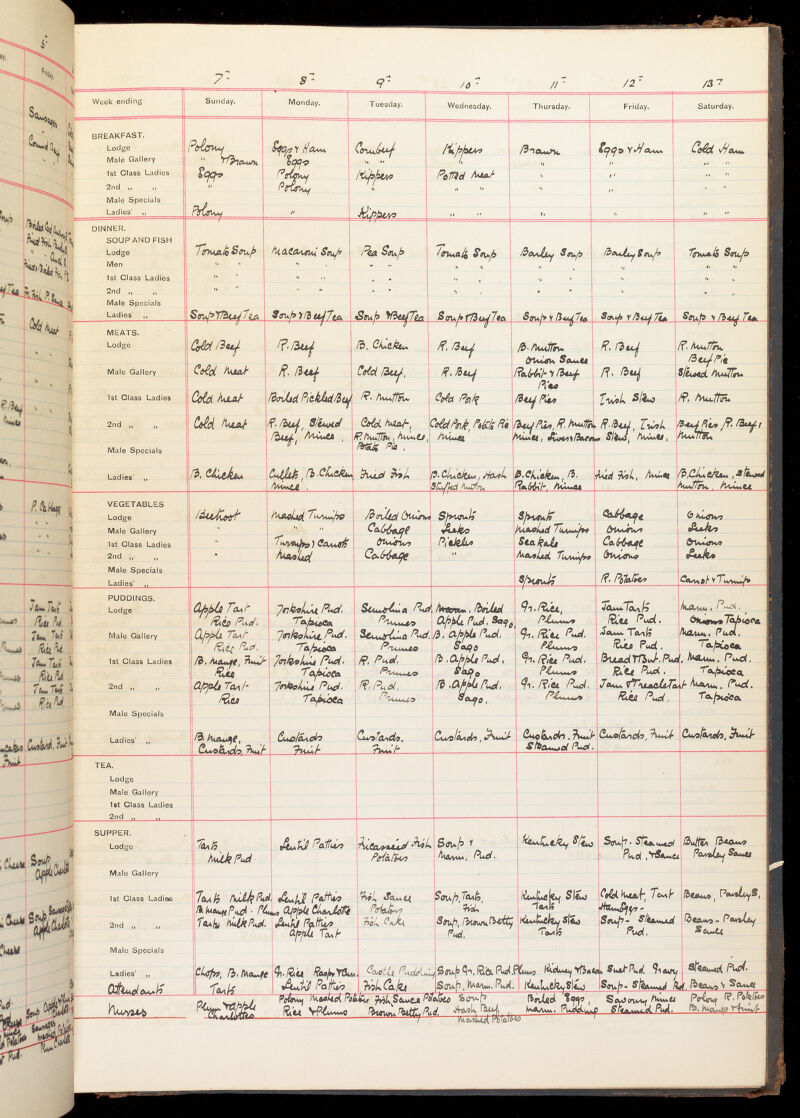 7th 8th 9th 10th 11th 12th 13th
Week ending Sunday. Monday. Tuesday. Wednesday. Thursday. Friday. Saturday.
BREAKFAST.
Lodge Polony Eggs & Ham Cornbeef Kippers Brawn Eggs & Ham Cold Ham
Male Gallery " & Brawn Eggs " " " " " "
1st Class Ladies Eggs Polony Kippers Potted Meat " " " " "
2nd " " " Polony " " " " " "
Male Specials
Ladies' " Polony " Kippers " " " " " "
DINNER.
SOUP AND FISH
Lodge Tomato Soup Macaroni Soup Pea Soup Tomato Soup Barley Soup Barley Soup Tomato Soup
Men " " " " " " " " " " " "
1st Class Ladies " " " " " " " " " " " "
2nd " " " " " " " " " " " "
Male Specials
Ladies' " Soup & Beef Tea Soup & Beef Tea Soup & Beef Tea Soup & Beef Tea Soup & Beef Tea Soup & Beef Tea Soup & Beef Tea
MEATS.
Lodge Cold Beef R. Beef B. Chicken R. Beef B. Mutton R. Beef R. Mutton
Onion Sauce Beef Pie
Male Gallery Cold Meat R. Beef Cold Beef. R. Beef Rabbit & Beef R. Beef Stewed Mutton
Pies
1st Class Ladies Cold Meat Boiled Pickled Beef R. Mutton Cold Pork Beef Pies Irish Stew R. Mutton
2nd " " Cold Meat R. Beef, Stewed Cold Meat, Cold Pork, Potato Pie Beef Pies, R. Mutton R. Beef, Irish Beef Pies, R. Beef,
Beef, Mince, R. Mutton, Mince, Mince Mince, Liver & Bacon Stew, Mince, Mutton
Male Specials Potato Pie.
Ladies' " B. Chicken Cutlets, B. Chicken Fried Fish B. Chicken, Hash B. Chicken, B. Fried Fish, Mince B. Chicken, Stewed
Mince Stuffed Mutton Rabbit, Mince Mutton, Mince
VEGETABLES
Lodge Beetroot Mashed Turnips Boiled Onions Sprouts Sprouts Cabbage Onions
Male Gallery " " Cabbage Leeks Mashed Turnips Onions Leeks
1st Class Ladies " Turnips & Carrots Onions Pickles Seakale Cabbage Onions
2nd " " " Mashed Cabbage " Mashed Turnips Onions Leeks
Male Specials
Ladies' " Sprouts R. Potatoes Carrot & Turnips
PUDDINGS.
Lodge Apple Tart Yorkshire Pud. Semolina Pud. Boiled Gr. Rice, Jam Tarts Marm. Pud.
Rice Pud. Tapioca Prunes Apple Pud. Sago, Plums Rice Pud. Tapioca
Male Gallery Apple Tart Yorkshire Pud. Semolina Pud. B. Apple Pud. Gr. Rice Pud. Jam Tarts Marm. Pud.
Rice Pud. Tapioca Prunes Sago Plums Rice Pud. Tapioca
1st Class Ladies B. Mange, Fruit Yorkshire Pud. R. Pud. B. Apple Pud. Gr. Rice Pud. Bread & But. Pud. Marm. Pud.
Rice Tapioca Prunes Sago Plums Rice Pud. Tapioca
2nd " " Apple Tart Yorkshire Pud. R. Pud. B. Apple Pud. Gr. Rice Pud. Jam & Treacle Tart Marm. Pud.
Rice Tapioca Prunes Sago. Plums Rice Pud. Tapioca
Male Specials
Ladies' " B. Mange, Custards Custards. Custards, Fruit Custards, Fruit Custards, Fruit Custards, Fruit
Custards, Fruit Fruit Fruit Steamed Pud.
TEA.
Lodge
Male Gallery
1st Class Ladies
2nd " "
SUPPER.
Lodge Tarts Lentil Patties Fricasseed Fish Soup & Kentucky Stew Soup - Steamed Butter Beans
Milk Pud Potatoes Marm. Pud. Pud. & Sauce Parsley Sauce
Male Gallery
1st Class Ladies Tarts Milk Pud. Lentil Patties Fish Sauce Soup, Tarts, Kentucky Stew Cold Meat, Tart Beans, Parsley S.
B. Mange Pud. Plums Apple Charlotte Potatoes Fish Tarts Ham Eggs
2nd " " Tarts Milk Pud. Lentil Patties Fish Cake Soup, Brown Betty Kentucky Stew Soup - Steamed Beans - Parsley
Apple Tart Pud. Tarts Pud. Sauce
Male Specials
Ladies' " Chops, B. Mange Gr. Rice Castle Pudding Soup Gr. Rice Pud. Plums Kidney & Bacon Suet Pud. Gravy Steamed Pud.
Attendants Tarts Lentil Patties Fish Cake Soup, Marm. Pud. Kentucky Stew Soup - Steamed Pud. Beans & Sauce
Nurses Plum & Apple Polony Mashed Potatoes Fish Sauce Potatoes Soup Boiled Eggs, Savoury Mince Polony R. Potatoes
Charlottes Rice & Plums Brown Betty Pud. Hash Beef Marm. Pudding Steamed Pud. B. Mange & Fruit
Mashed Potatoes